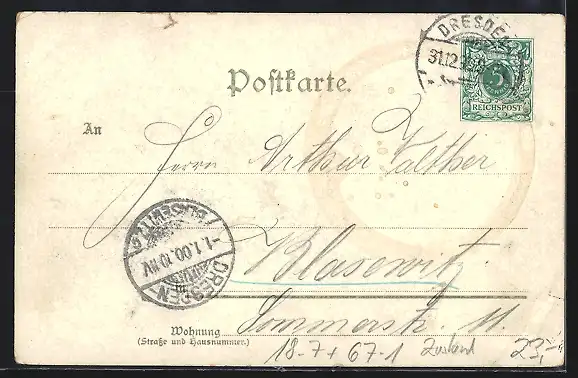 DRESDEN
31.12.99
5
REICHSPOST
Postkarte.
An
Herrn Arthur Walther
BLASEWITZ
-1.1.00.10-11V.
DRESDEN
Blasewitz
Wohnung
(Straße und Hausnummer.)
Sommerstr. 11.
18.-7 + 67.1 Zustand 23,-